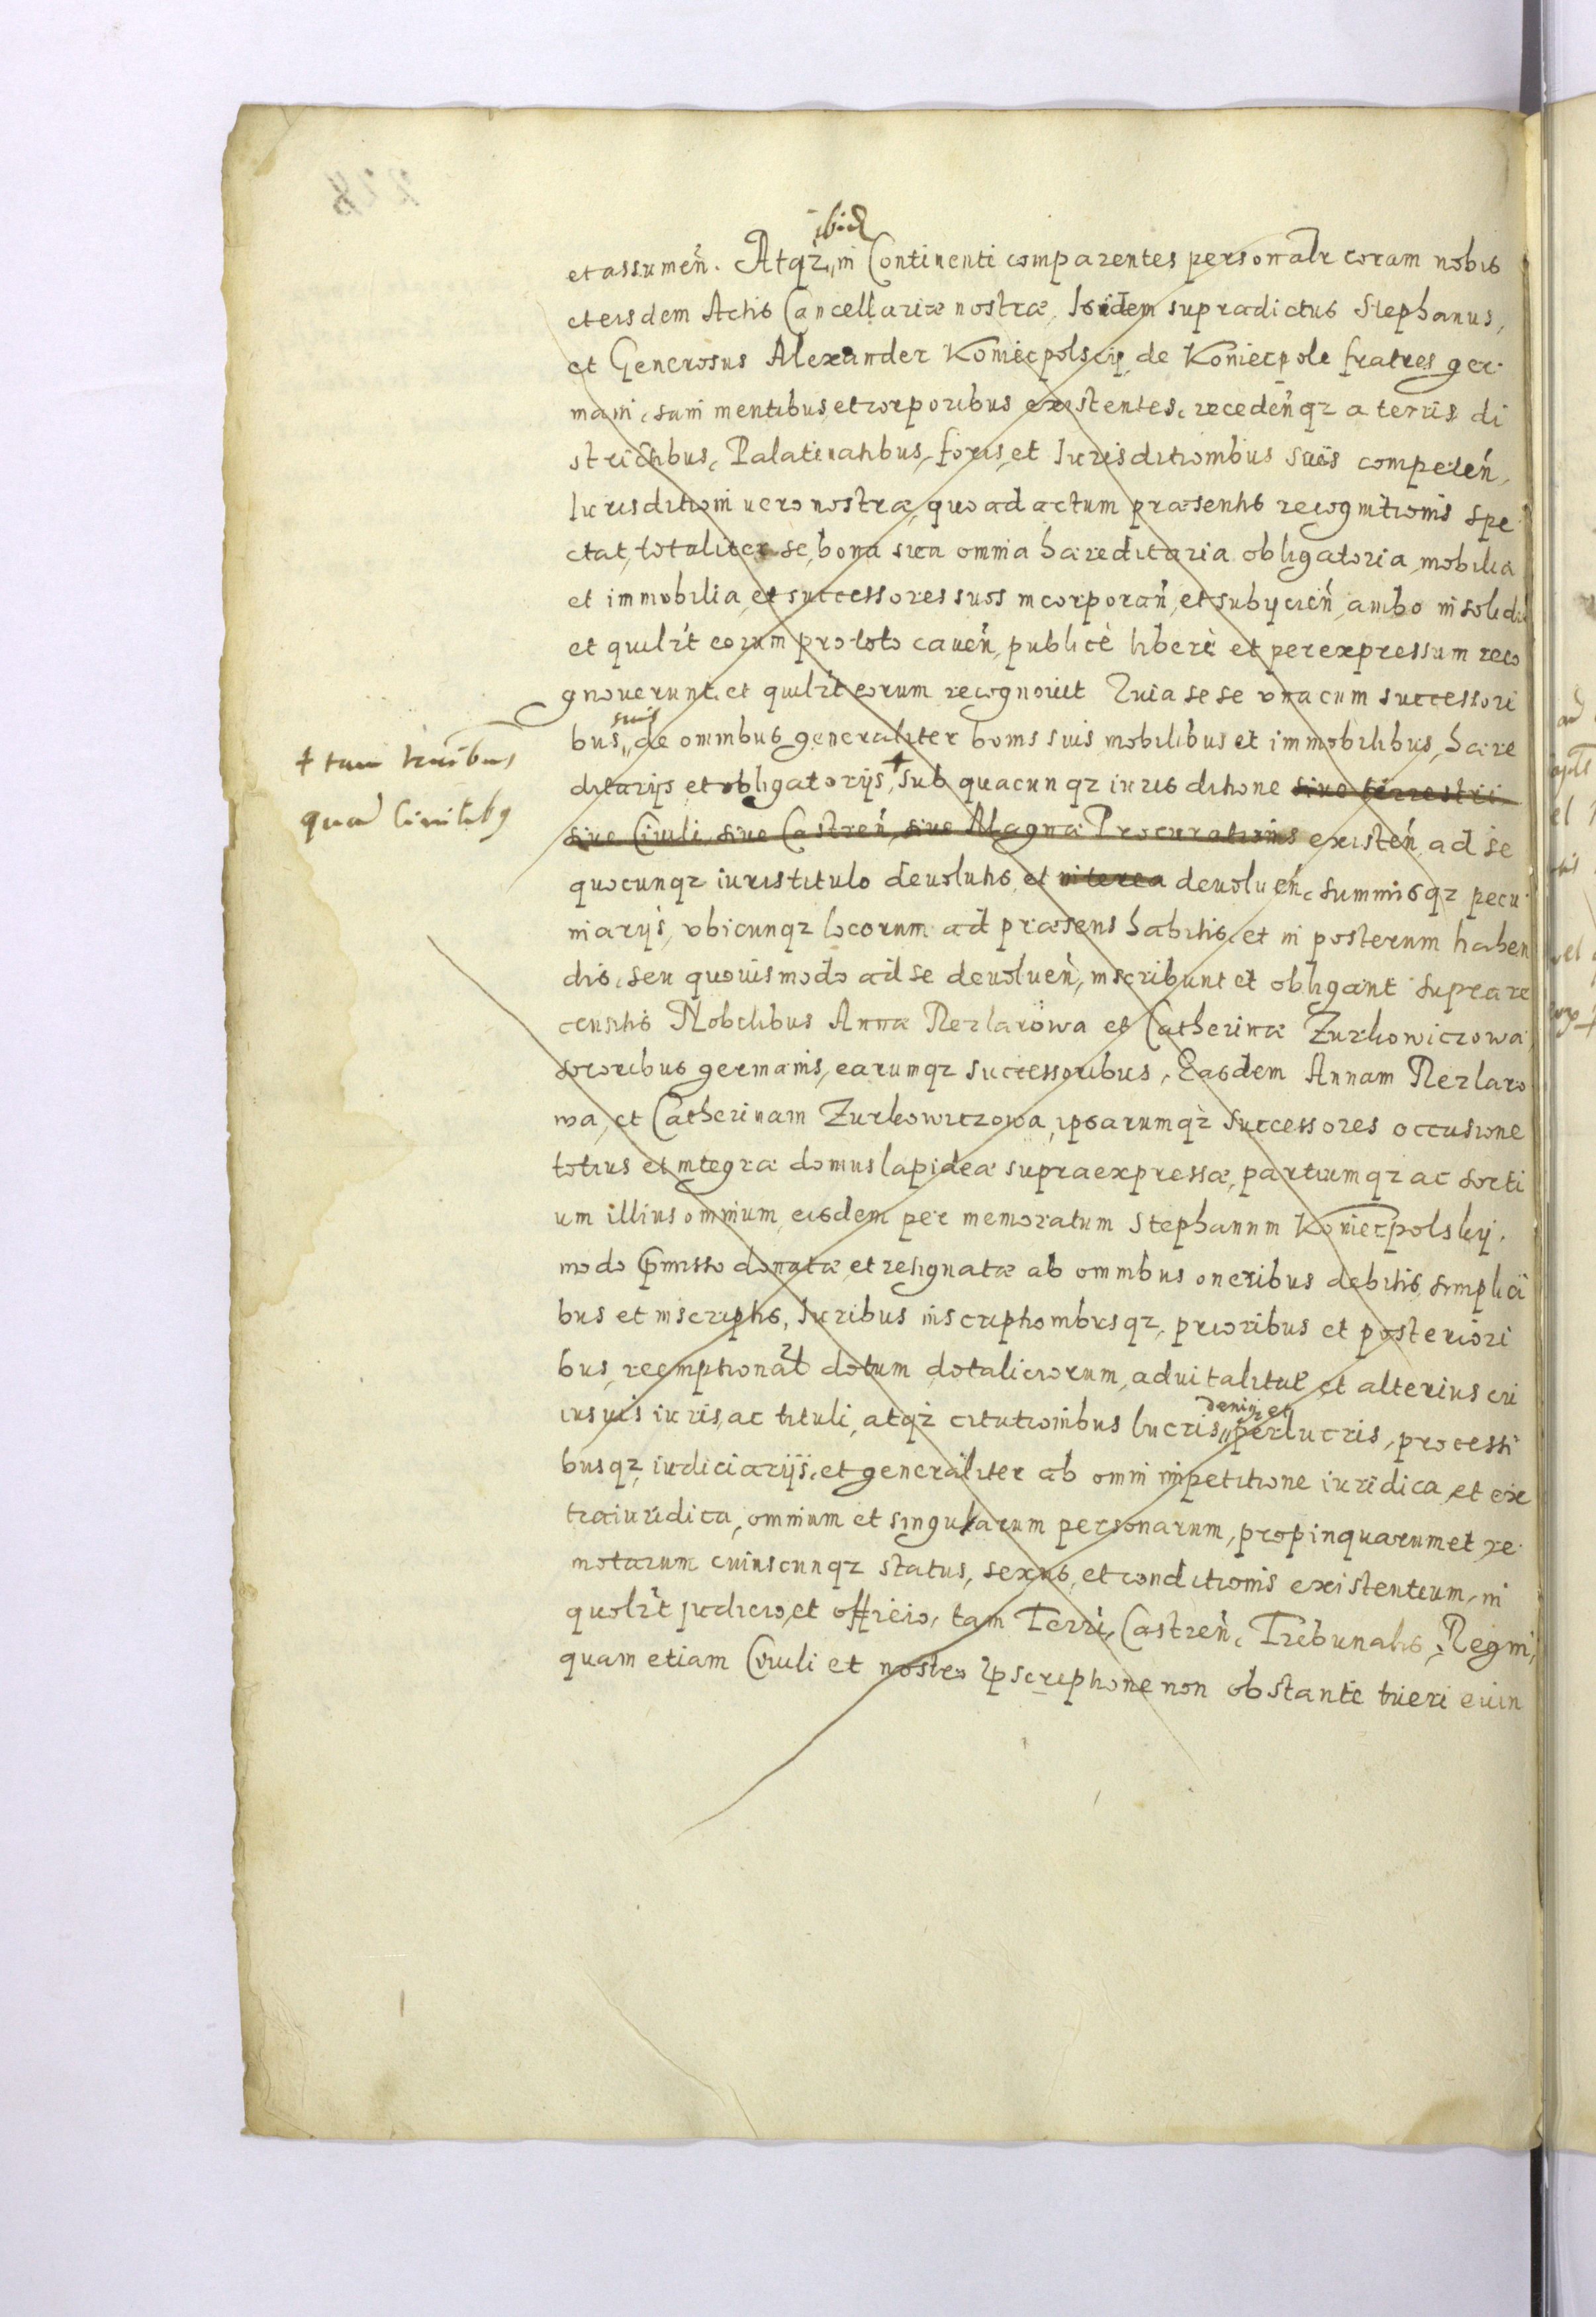 ibid
et assumeñ. Atqz in Continenti comparentes personalr coram nobis
et eisdem Actis Cancellariæ nostræ, Isidem supradictus Stephanus,
et Generosus Alexander Koniecpolscij de Koniecpole fratres ger
mani, sani mentibus et corporibus existentes, recedeñqz a terris di
strictibus, Palatinatibus, foris, et Iurisditionibus suis competeñ,
Iurisditioni uero nostræ, quo ad actum præsentis recognitionis spe
ctat, totaliter se, bona sua omnia hæreditaria obligatoria, mobilia
et immobilia, et successores suos incorporañ, et subijcieñ, ambo insolidũ
et quilzt eorum pro toto caueñ, publicè liberè et per expressum reco
gnouerunt, et quilzt eorum recognouit Quia se se vna cum successori
bus suis de omnibus generaliter bonis suis mobilibus et immobilibus, hære
ditarijs et obligatorijs, + sub quacunqz iurisditione siue terrestri
+ tam terribus
quã Ciuilibus
siue Ciuili, siue Castreñ, siue Magnæ Procurationis existeñ, ad se
quocunqz iuris titulo deuolutis, et interea deuolueñ, summisqz pecu
niarijs, vbicunqz locorum ad præsens habitis, et in posterum haben
dis, seu quouismodo ad se deuolueñ, inscribunt et obligant supra re
censitis Nobilibus Annæ Rezlarowa et Catherinæ Zurkowiczowa
sororibus germanis, earumqz successoribus, Easdem Annam Rezlaro
wa, et Catherinam Zurkowiczowa, ipsarumqz successores occasione
totius et integræ domus lapideæ supraexpressæ, partiumqz ac sorti
um illius omnium, eisdem per memoratum Stephanum Koniecpolskij,
modo p̃misso donatæ, et resignatæ ab omnibus oneribus debitis, simplici
bus et inscriptis, Iuribus inscriptionibusqz, prioribus et posteriori
bus, reemptional dotum dotaliciorum, aduitalitat et alterius cu
iusuis iuris, ac tituli, atqz citationibus lucris, deniqz et perlucris, processi
busqz iudiciarijs, et generaliter ab omni impetitione iuridica, et ex
traiuridica, omnium et singularum personarum, propinquarum et re
motarum cuiuscunqz status, sexus, et conditionis existentium, in
quolzt judicio, et officio, tam Terrì, Castreñ, Tribunalis, Regni,
quam etiam Ciuili et nostro p̃scriptione non obstante tueri euin